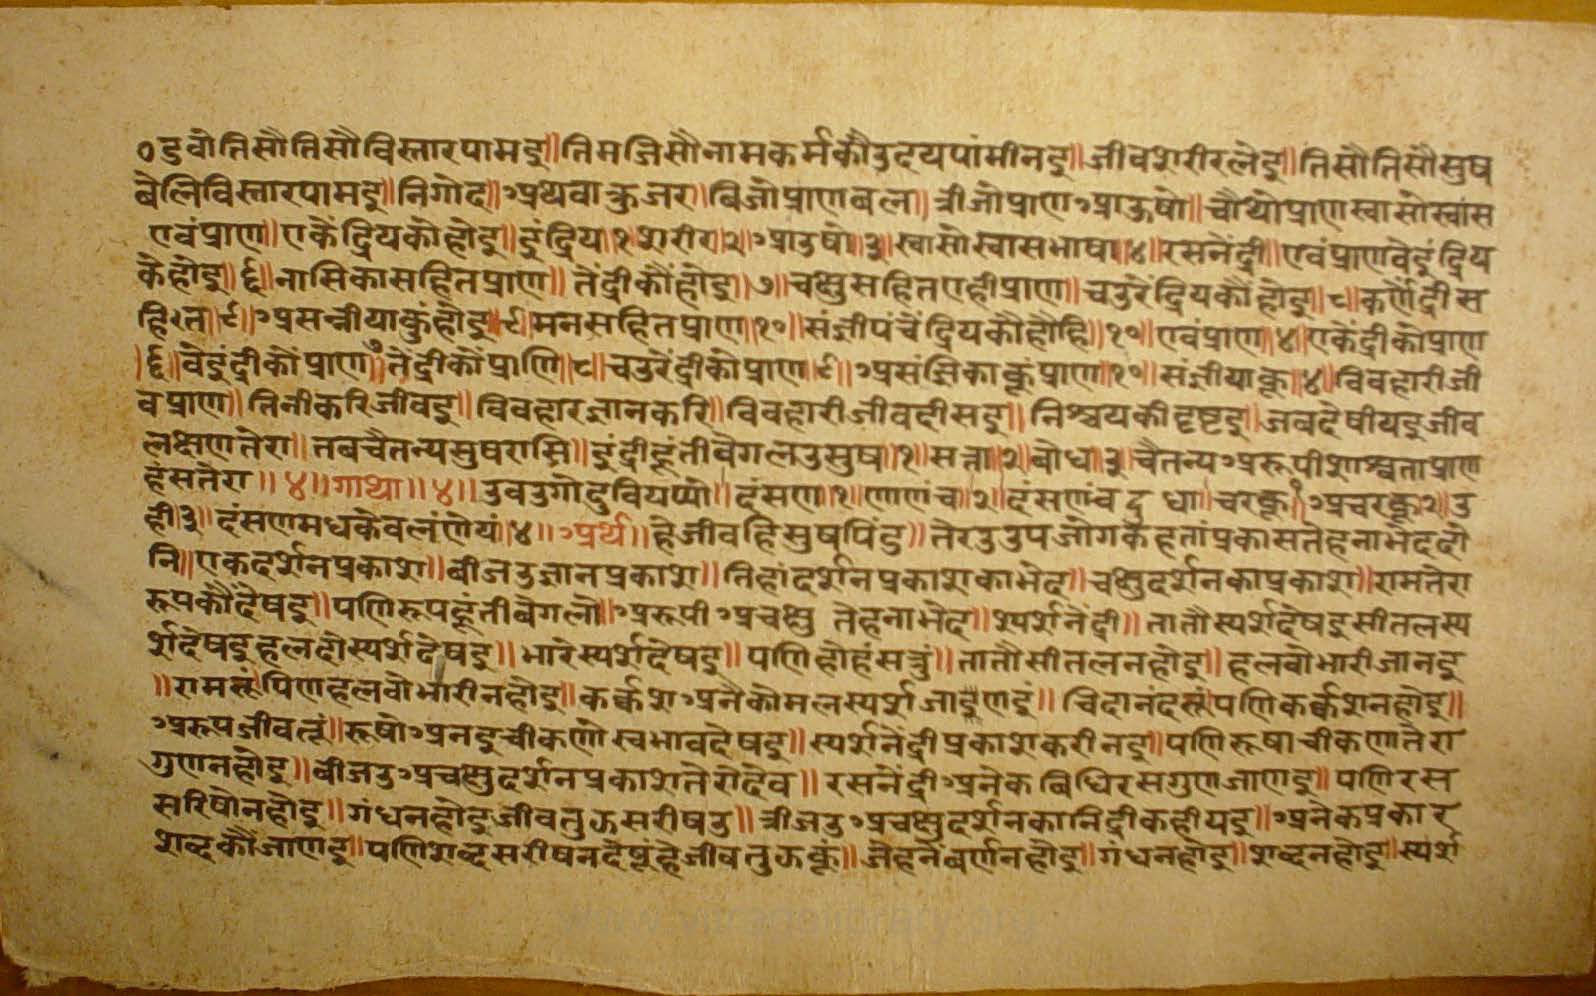 ०डुवोतिसौतिसौविस्तारपामइ॥तिमजिसौनामकर्मकौउदयपांमीनइ॥जीवशरीरलेइ॥तिसौतिसौसुष
बेलिविस्तारपामइ॥निगोद॥अथवाकुजर॥बिजोप्राणबल॥त्रीजोप्राणआऊषो॥चौथोप्राणस्वासोस्वास
एवंप्राण॥एकेंद्रियकोहोइ॥इंद्रिय॥१॥शरीर॥२॥आउषो॥३॥स्वासोस्वासभाषा॥४॥रसनेंद्री॥एवंप्राणवेइंद्रिय
केहोइ॥६॥नासिकासहितप्राण॥तेंद्रीकौंहोइ॥७॥चक्षुसहितएहीप्राण॥चउरेंद्रियकौंहोइ॥८॥कर्णेंद्रीस
हित॥९॥असन्नीयाकुंहोइ॥९॥मनसहितप्राण॥१०॥संज्ञीपंचेंद्रियकौहौहि॥१०॥एवंप्राण॥४॥एकेंद्रीकोप्राण
॥६॥वेइंद्रीकोंप्राण॥७॥तेंद्रीकोंप्राणि॥८॥चउरेंद्रीकोप्राण॥९॥असंज्ञिकाकूंप्राण॥१०॥संज्ञीयाकू॥४॥विवहारीजी
वप्राण॥तिनीकरिजीवइ॥विवहारज्ञानकरि॥विवहारीजीवदीसइ॥निश्चयकीदृष्टइ॥जबदेषीयइजीव
लक्षणतेरा॥तबचैतन्यसुषरासि॥इंद्रीहूंतीवेगलउसुष॥१॥सत्ता॥२॥बोध॥३॥चैतन्यअरूपीशाश्वताप्राण
हंसतेरा॥४॥गाथा॥४॥उवउगोदुवियप्पो॥दंसण॥१॥णाणंच॥२॥दंसणंचदुधा॥चरकू॥१॥अचरकू॥२॥उ
ही॥३॥दंसणमधकेवलंणेयं॥४॥अर्थ॥हेजीवहिसुषपिंड॥तेरउउपजोगकेहतांप्रकासतेहनाभेददो
नि॥एकदर्शनप्रकाश॥बीजउज्ञानप्रकाश॥तिहांदर्शनप्रकाशकाभेद॥चक्षुदर्शनकाप्रकाश॥रामतेरा
रूपकौंदेषइ॥पणिरूपहूंतीबेगलो॥अरूपीअचक्षु तेहनाभेद॥स्पर्शनेंद्री॥तातौस्पर्शदेषइसीतलस्प
र्शदेषइहलदोस्पर्शदेषइ॥भारेस्पर्शदेषइ॥पणिहोहंसत्रुं॥तातौसीतलनहोइ॥हलवोभारीजानइ
॥रामत्तूंपिणहलवोभारीनहोइ॥कर्कशअनैकोमलस्पर्शजाइणइं॥चिदानंदत्तूंपणिकर्कशनहोइ॥
अरूपजीवत्तूं॥रूषोअनइचीकणोस्वभावदेषइ॥स्पर्शनेंद्रीप्रकाशकरीनइ॥पणिरूषाचीकणातेरा
गुणनहोइ॥बीजउअचक्षुदर्शनप्रकाशतेरोदेव॥रसनेंद्रीअनेकबिधिरसगुणजाणइ॥पणिरस
सरिषोनहोइ॥गंधनहोइजीवतुझसरीषउ॥त्रीजउअचक्षुदर्शनकानिंद्रीकहीयइ॥अनेकप्रकार
शब्दकौंजाणइ॥पणिशब्दसरीषनदेषूंहेजीवतुझकूं॥जेहनेबर्णनहोइ॥गंधनहोइ॥शब्दनहोइ॥स्पर्श